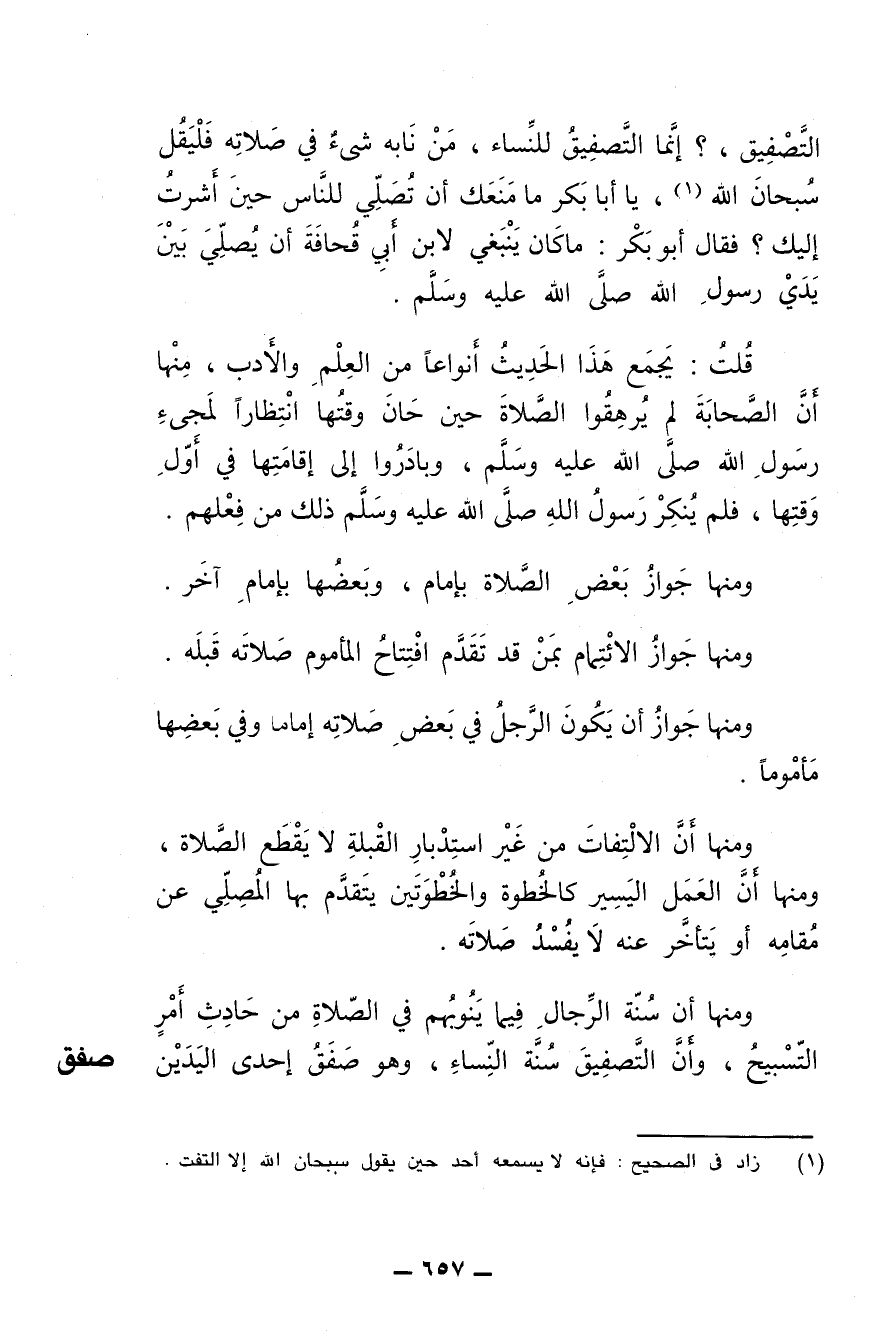 التَّصْفِيق ، ؟ إنَّما التَّصفِيقُ للنِّساء ، مَنْ نَابه شىءٌ في صَلاتِه فَلْيَقُل
سُبحانَ الله (١) ، يا أبا بَكر ما مَنَعَك أن تُصَلِّي للنَّاس حينَ أَشرتُ
إليك ؟ فقال أبو بَكْر : ماكَان يَنْبَغي لابن أَبي قُحافَةَ أن يُصلِّيَ بَيْنَ
يَدَيْ رسولِ الله صلَّى الله عليه وسَلَّم .
قُلتُ : يَجمَع هَذَا الحَدِيثُ أَنواعاً من العِلْمِ والأَدب ، مِنْها
أَنَّ الصَّحابَةَ لم يُرهِقُوا الصَّلاةَ حين حَانَ وقتُها انْتِظاراً لمَجىءِ
رسَولِ الله صلَّى الله عليه وسَلَّم ، وبادَرُوا إلى إقامَتِها في أَوّلِ
وَقتِها ، فلم يُنكِرْ رَسولُ اللهِ صلَّى الله عليه وسَلَّم ذلك من فِعْلهم .
ومنها جَوازُ بَعْضِ الصَّلاة بإمام ، وبَعضُها بإمامٍ آخَر .
ومنها جَوازُ الائْتِمام بمَنْ قد تَقَدَّم افْتِتاحُ المأموم صَلاتَه قَبلَه .
ومنها جَوازُ أن يَكُونَ الرَّجلُ في بَعضِ صَلاتِه إماما وفي بَعضِها
مَأمْوماً .
ومنها أَنَّ الالْتِفاتَ من غَيْر استِدْبارِ القْبلةِ لا يَقْطَع الصَّلاة ،
ومنها أَنَّ العَمَل اليَسِير كالخُطوة والخُطْوَتَين يتَقدَّم بها المُصِلِّي عن
مُقامِه أو يَتأخَّر عنه لَا يفُسْدُ صَلاتَه .
ومنها أن سُنّة الرِّجالِ فِيما يَنُوبُهم في الصّلاةِ من حَادِثِ أَمْرٍ
التّسْبيحُ ، وأَنَّ التَّصفِيقَ سُنَّة النِّساءِ ، وهو صَفَقُ إحدى اليَدَيْن صفق
(١) زاد فى الصحيح : فإنه لا يسمعه أحد حين يقول سبحان الله إلا التفت .
ــ ٦٥٧ ــ